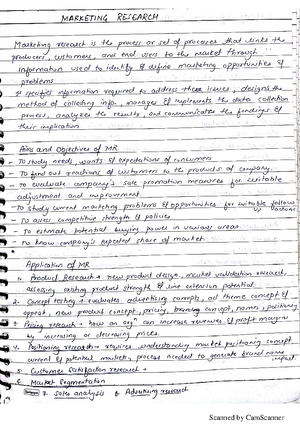 MARKETING RESEARCH
Marketing research is the process or set of processes that links the
producers, customers, and end users to the market through
information used to identify & define marketing opportunities &
problems.
It specifies information required to address these issues, designs the
method of collecting info, manages & implements the data collection
process, analyzes the results, and communicates the findings &
their implication
Aims and Objectives of MR
- To study needs, wants & expectations of consumers
- To find out reactions of customers to the products of company.
- To evaluate company's sale promotion measures for suitable
adjustment and improvement
- To study current marketing problems & opportunities for suitable follow
up actions
- To assess competitive strengths & policies
- To estimate potential buying power in various areas
- To know company's expected share of market.
Application of MR
1. Product Research → new product design, market validation research,
assessing existing product strength & line extension potential
2. Concept testing → evaluates advertising concepts, ad theme concept &
appeal, new product concept, pricing, branding concept, names, positioning
3. Pricing research → how an orgn can increase revenues & profit margins
by increasing or decreasing prices.
4. Positioning research → requires understanding market positioning concept,
current & potential markets, process needed to generate brand name
impact.
5. Customer Satisfaction research →
6. Market Segmentation
7. Sales analysis 8. Advertising research
Scanned by CamScanner